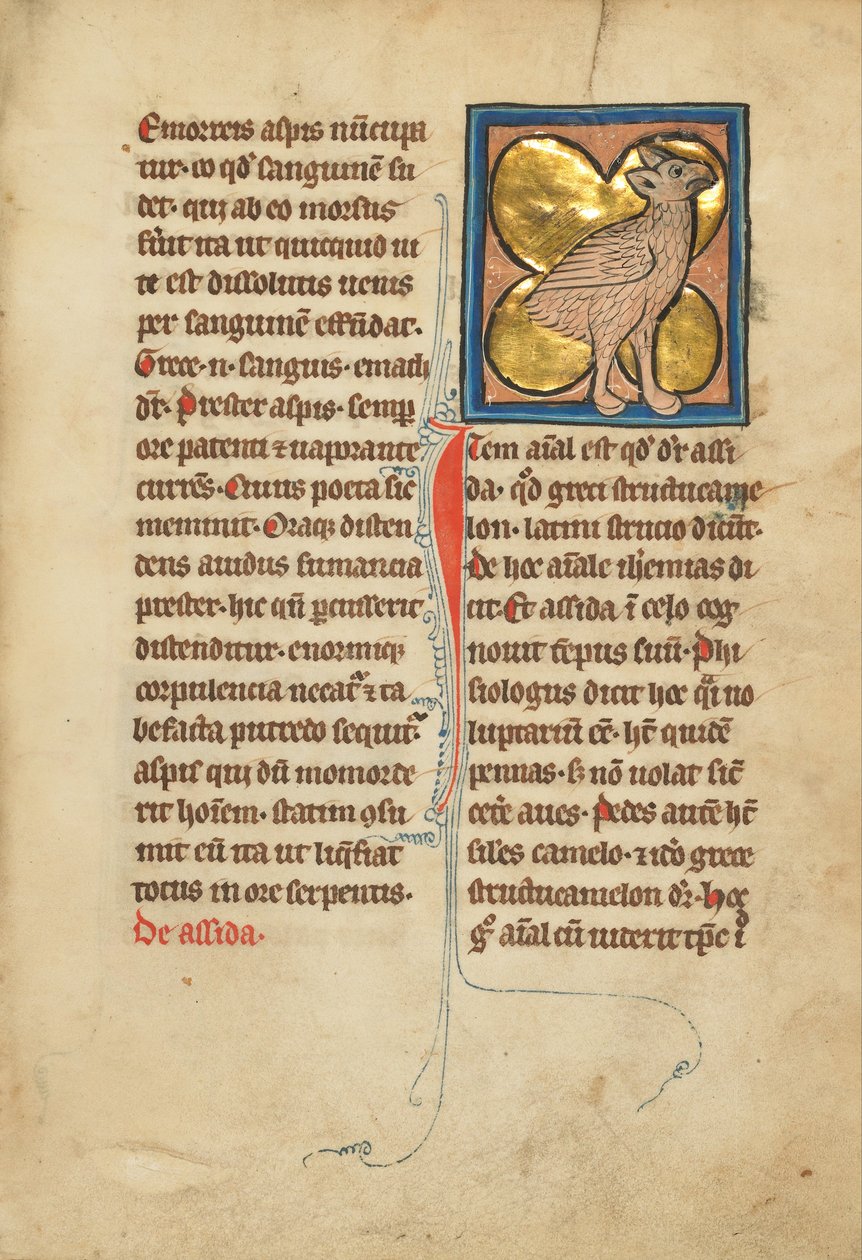 Emorreis aspis nūcupa
tur· eo qd' sanguinē su
det· qui ab eo morsus
fu'it ita ut quicquid ui
te est dissolutis uenis
per sanguinē effūdat·
Grece·n·sanguis·emath
dr̄· Prester aspis· semp̄
ore patenti ⁊ uaporante
currēs· Cuius poeta sic
meminit· Oraq; disten
dens auidus fumancia
prester· hic qn̄ p̄cusserit
distenditur· enormiq;
corpulencia necat᷑ ⁊ ta
befacta putredo sequit᷑·
aspis qui dū momorde
rit hoīem· statim ꝯsu
mit eū ita ut liq̄fiat
totus in ore serpentis·
De assida·
Item aīal est qd' dr̄ assi
da· qd̊ greci structucame
lon· latini strucio dicūt·
De hoc aīale ih'emias di
cit· Et assida ī celo cog
nouit tēpus suū· Phi
siologus dicit hoc qͣi uo
luptariū ēē· ht̄ quidē
pennas· s; nō uolat sic̄
cet'e aues· Pedes autē ht̄
sil'es camelo· ⁊ ic'o grece
structucamelon dr̄· Hoc
g̊ aīal cū uiderit tp̄c i̊